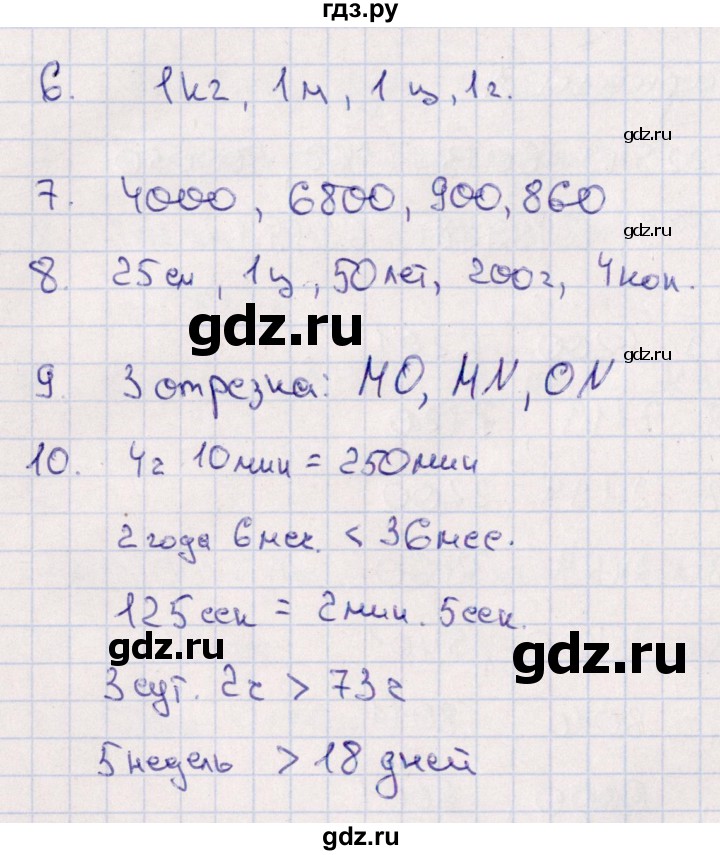 гдз.ру
6. 1кг, 1м, 1ц, 1г.
gdz.ru
7. 4000, 6800, 900, 860
gdz.ru
8. 25см, 1ц, 50 лет, 200г, 4коп.
gdz.ru
gdz.ru
9. 3 отрезка: МО, МN, ОN
10. 4ч 10мин = 250мин
2 года 6мес. < 36мес.
125сек = 2мин. 5сек.
gdz.ru
gdz.ru
3 сут. 2ч > 73ч
5 недель > 18 дней
gdz.ru